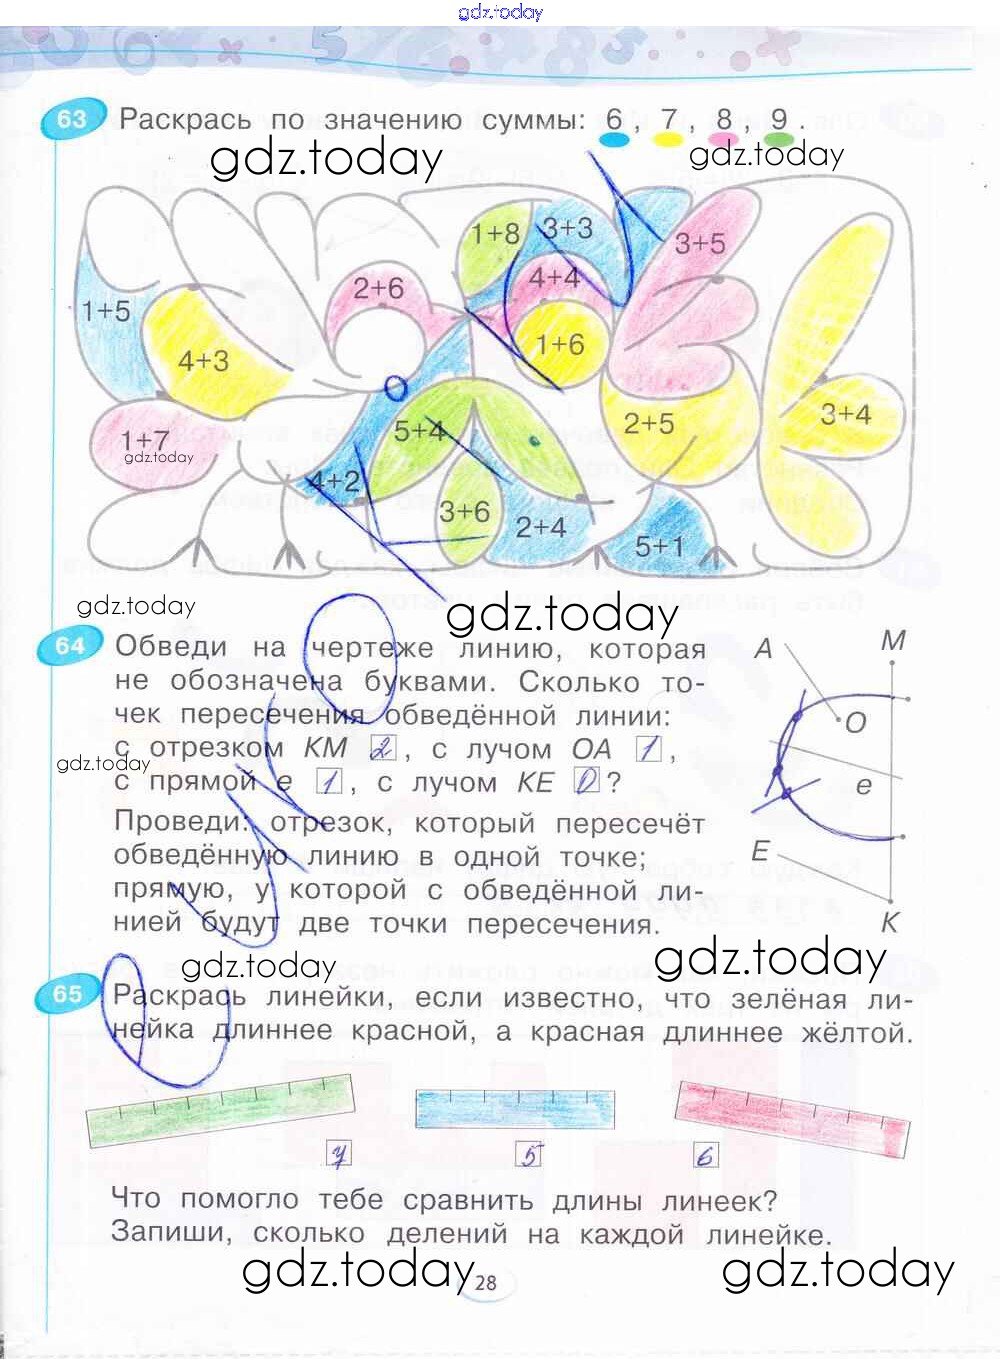 gdz.today
63 Раскрась по значению суммы: 6, 7, 8, 9.
gdz.today gdz.today
1+8 3+3 3+5
2+6 4+4
1+5
4+3 1+6
1+7 5+4 2+5 3+4
gdz.today
4+2
3+6 2+4 5+1
gdz.today gdz.today
64 Обведи на чертеже линию, которая
не обозначена буквами. Сколько то-
чек пересечения обведённой линии:
с отрезком КМ 2, с лучом ОА 1,
gdz.today
с прямой е 1, с лучом КЕ 0?
Проведи: отрезок, который пересечёт
обведённую линию в одной точке;
прямую, у которой с обведённой ли-
нией будут две точки пересечения.
A M
O
e
E
K
gdz.today gdz.today
65 Раскрась линейки, если известно, что зелёная ли-
нейка длиннее красной, а красная длиннее жёлтой.
7 5 6
Что помогло тебе сравнить длины линеек?
Запиши, сколько делений на каждой линейке.
gdz.today gdz.today
28